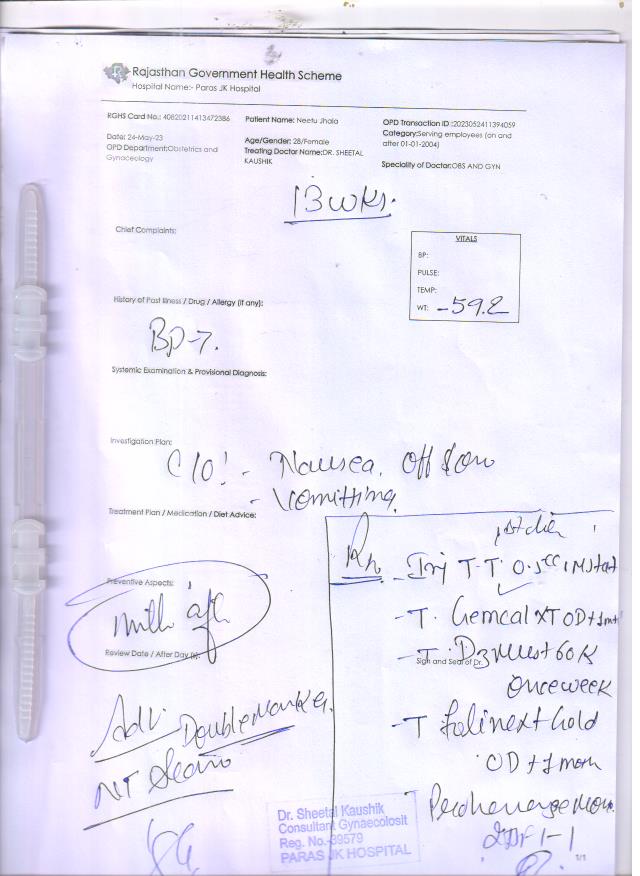 Rajasthan Government Health Scheme
Hospital Name:- Paras JK Hospital
RGHS Card No.: 40820211413472386
Patient Name: Neetu Jhala
OPD Transaction ID :2023052411394059
Category:Serving employees (on and after 01-01-2004)
Date: 24-May-23
Age/Gender: 28/Female
OPD Department:Obstetrics and Gynaecology
Treating Doctor Name:DR. SHEETAL KAUSHIK
Speciality of Doctor:OBS AND GYN
13 wks.
Chief Complaints:
VITALS
BP:
PULSE:
TEMP:
WT: - 59.2
History of Past Illness / Drug / Allergy (if any):
BP-
Systemic Examination & Provisional Diagnosis:
Investigation Plan:
C/O! - Nausea, Off
- Vomitting
Treatment Plan / Medication / Diet Advice:
Rx
- Inj T.T. 0.5cc IM stat
Preventive Aspects:
- T. Gemcal XT OD
Review Date / After Day (s):
- T. D3 Must 60K
Sign and Seal of Dr.
Once week
Adv. Double Marker
- T Folinext Gold
NT Scan
OD + 1 mon
Dr. Sheetal Kaushik
Consultant Gynaecolosit
Reg. No.-39579
PARAS JK HOSPITAL
1-1
1/1